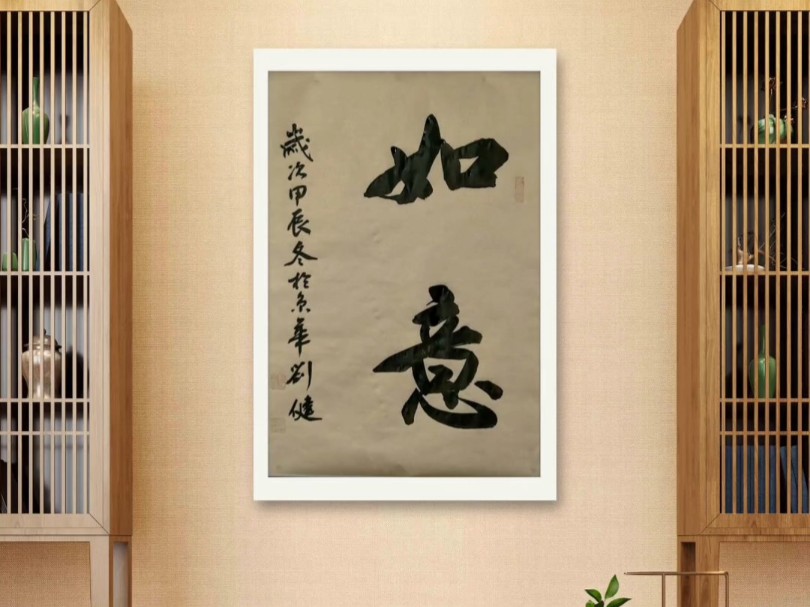 如意
歲次甲辰冬於京華劉健